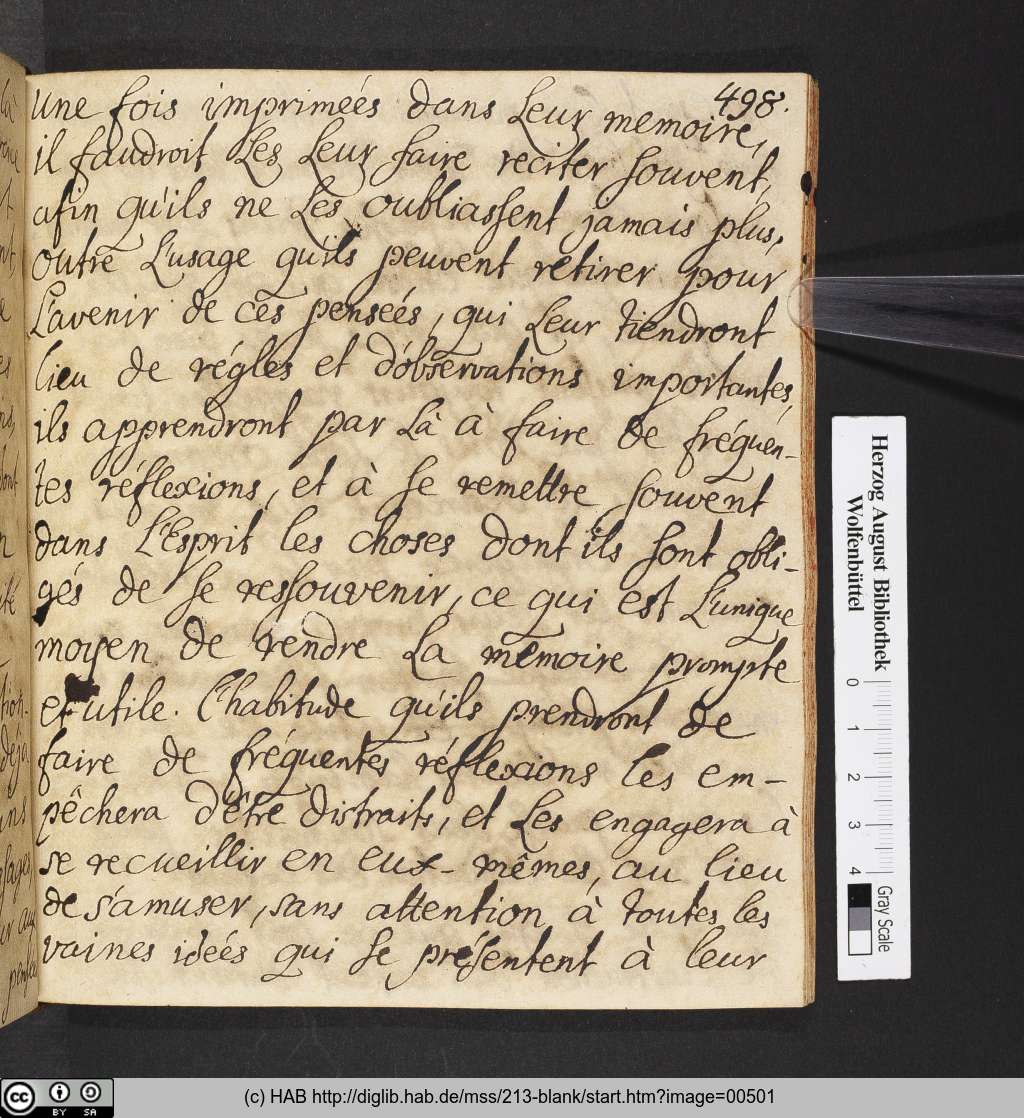 498.
une fois imprimeés dans Leur memoire,
il faudroit Les Leur faire reciter souvent,
afin qu'ils ne Les oubliassent jamais plus,
outre L'usage qu'ils peuvent retirer pour
L'avenir de ces penseés, qui Leur tiendront
lieu de régles et d'observations importantes,
ils apprendront par Là à faire de fréquen-
tes réflexions, et à se remettre souvent
dans L'Esprit les choses dont ils sont obli-
gés de se ressouvenir, ce qui est L'unique
moyen de rendre La mémoire prompte
et utile. l'habitude qu'ils prendront de
faire de fréquentes réflexions les em-
pêchera d'être distraits, et Les engagera à
se recueillir en eux-mêmes, au lieu
de s'amuser, sans attention à toutes les
vaines ideés qui se présentent à leur
Herzog August Bibliothek
Wolfenbüttel
0 1 2 3 4
Gray Scale
cc BY SA
(c) HAB http://diglib.hab.de/mss/213-blank/start.htm?image=00501